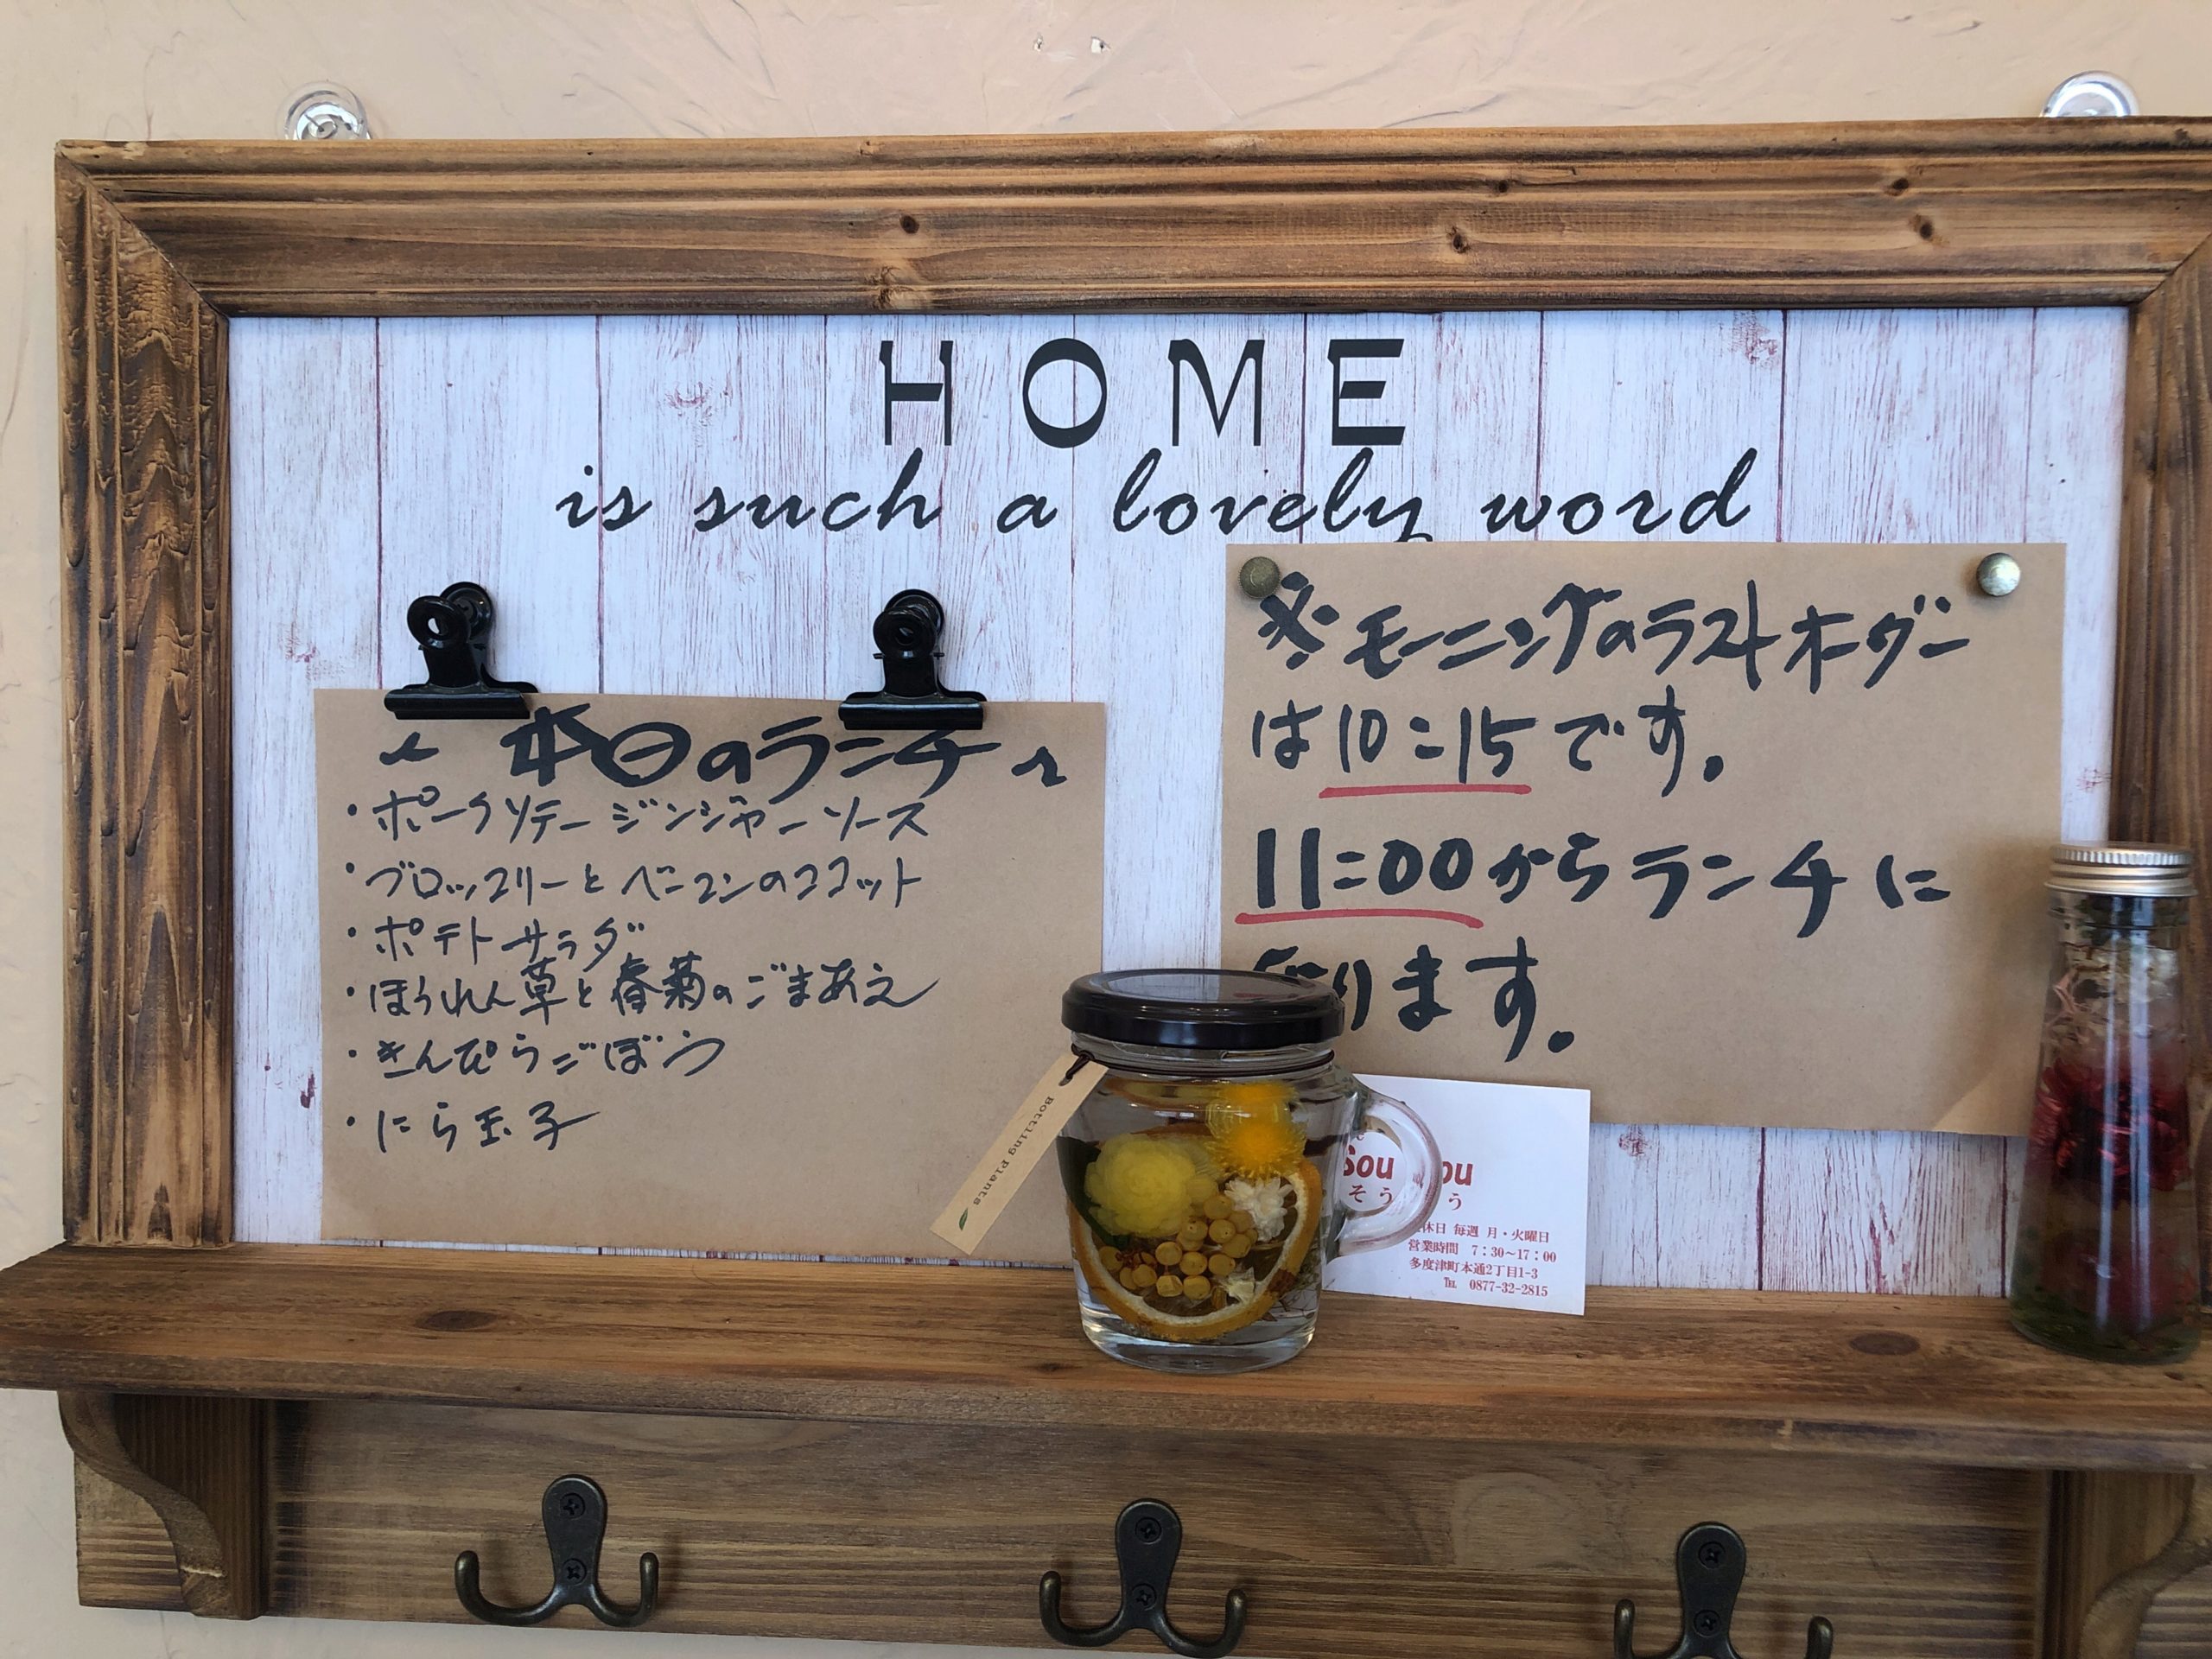 HOME
is such a lovely word
本日のランチ
・ポークソテー ジンジャーソース
・ブロッコリーとベーコンのココット
・ポテトサラダ
・ほうれん草と春菊のごまあえ
・きんぴらごぼう
・にら玉子
※モーニングのラストオーダー
は10:15です。
11:00からランチに
ります。
Bottling Plants
Sou ou
そう う
休日 毎週 月・火曜日
営業時間 7:30~17:00
多度津町本通2丁目1-3
℡ 0877-32-2815